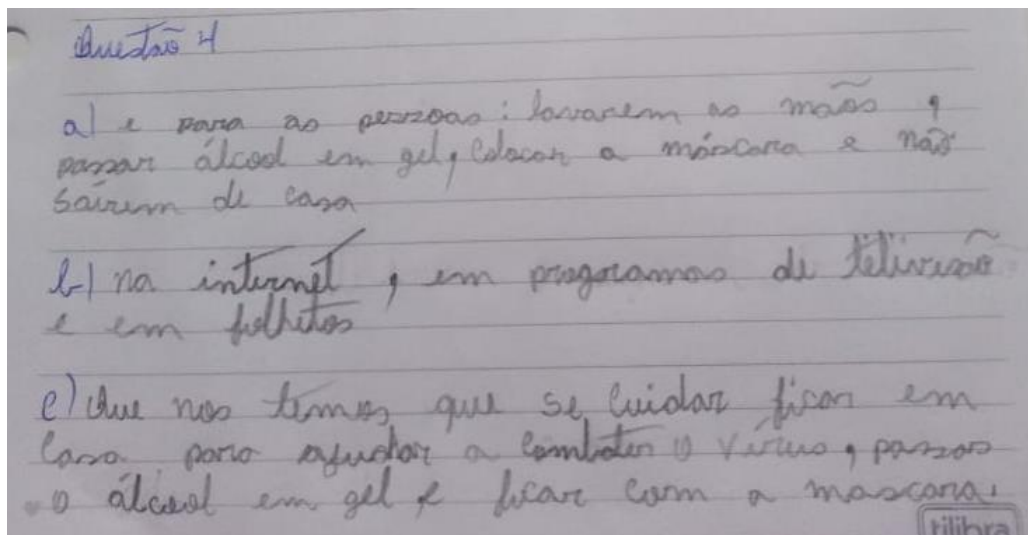 Questão 4
a) e para as pessoas: lavarem as mãos,
passar álcool em gel, Colocar a máscara e não
saírem de casa
b) na internet, em programas de telivisão
e em folhetos
c) Que nos temos que se cuidar ficar em
Casa para ajudar a Combater o vírus, passar
o álcool em gel e ficar com a mascara.
tilibra